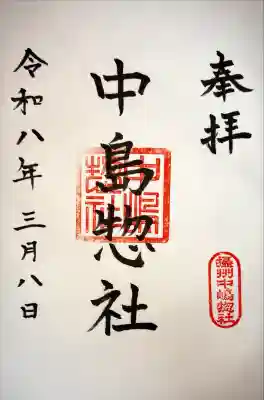 奉拝
中島惣社
令和八年 三月八日
摂州中嶋惣社